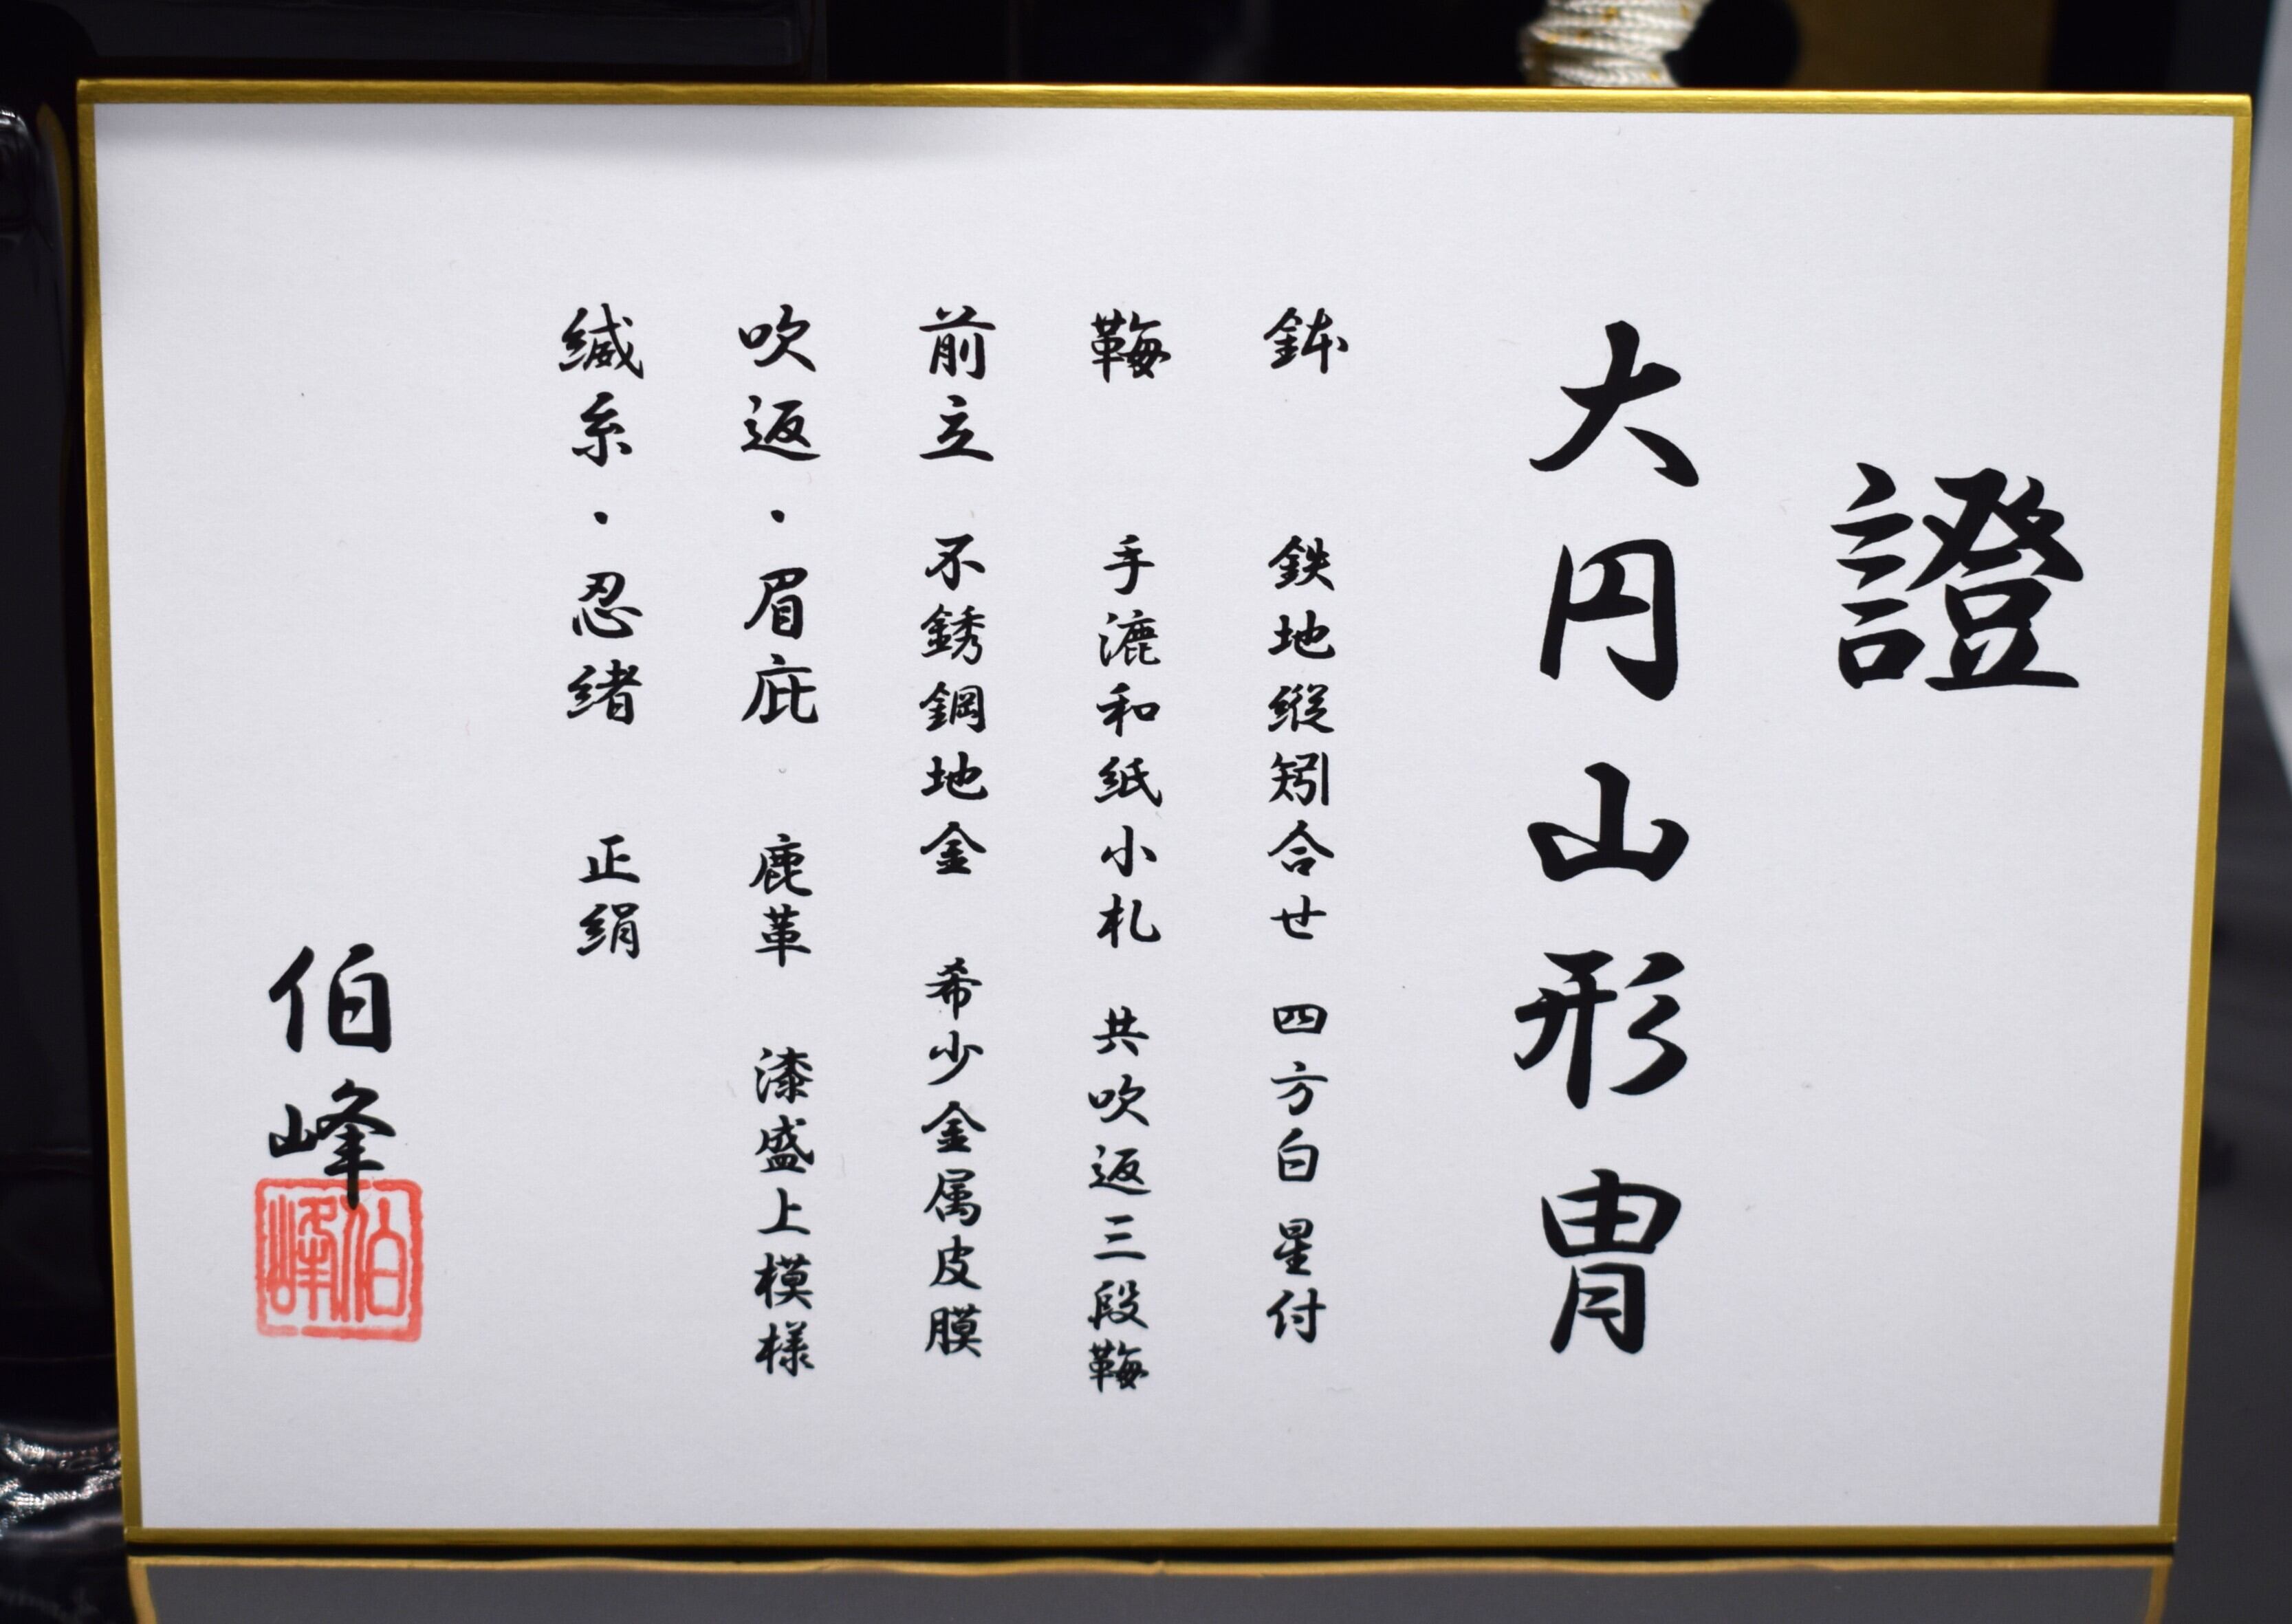 證
大円山形冑
鉢 鉄地縦矧合せ 四方白 星付
鞠 手漉和紙小札 共吹返三段鞠
前立 不銹鋼地金 希少金属皮膜
吹返・眉庇 鹿革 漆盛上模様
縅糸・忍緒 正絹
伯峰
伯峰